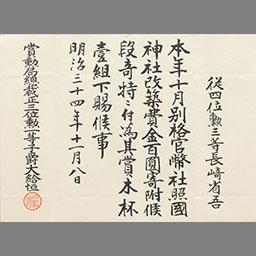 従四位勲三等長崎省吾
本年十月別格官幣社照國
神社改築費金百圓寄附候
段奇特ニ付為其賞木杯
壹組下賜候事
明治三十四年十一月八日
賞勲局総裁正三位勲一等子爵大給恒